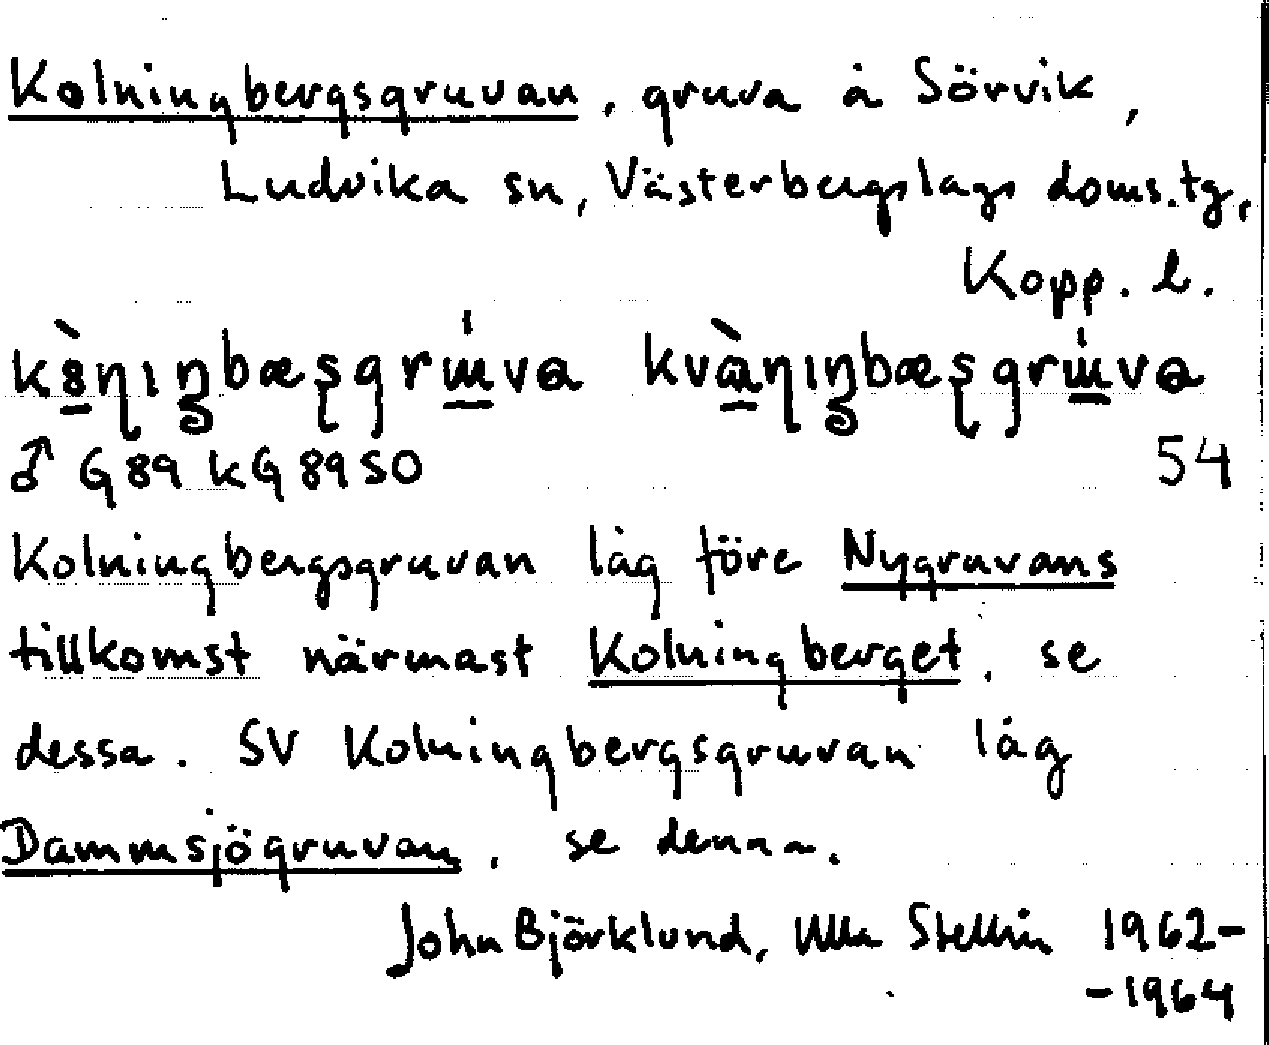 Kolningbergsgruvan, gruva å Sörvik,
Ludvika sn, Västerbergslags doms.tg,
Kopp. l.
♂ G89 kG8950
54
Kolningbergsgruvan låg före Nygruvans
tillkomst närmast Kolningberget, se
dessa. SV Kolningbergsgruvan låg
Dammsjögruvan, se denna.
John Björklund, Ulla Stellin 1962-
-1964